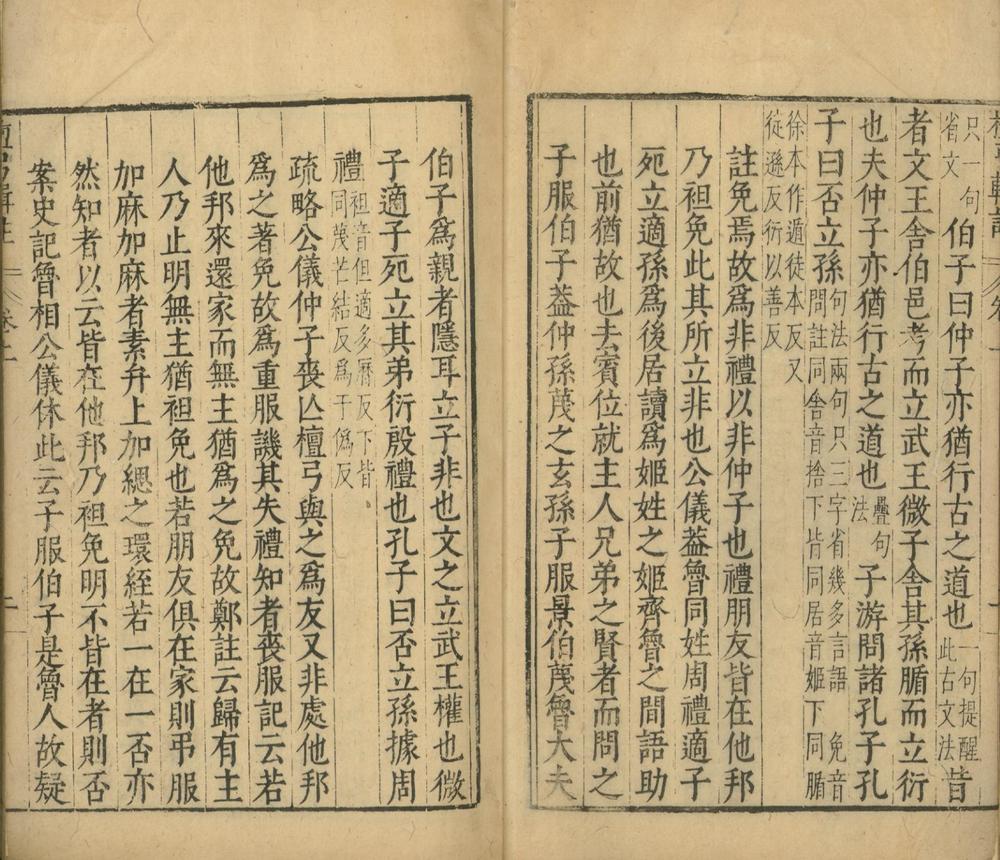 只一句省文伯子曰仲子亦猶行古之道也一句提醒此古文法昔
者文王舍伯邑考而立武王微子舍其孫腯而立衍
也夫仲子亦猶行古之道也疊句法子游問諸孔子孔
子曰否立孫句法兩句只三字省幾多言語 免音問註同舍音捨下皆同居音姬下同腯
徐本作遁徒本反又徒遜反衍以善反
註免焉故爲非禮以非仲子也禮朋友皆在他邦
乃袒免此其所立非也公儀葢魯同姓周禮適子
死立適孫爲後居讀爲姬姓之姬齊魯之間語助
也前猶故也去賓位就主人兄弟之賢者而問之
子服伯子葢仲孫蔑之玄孫子服景伯蔑魯大夫
伯子爲親者隱耳立子非也文之立武王權也微
子適子死立其弟衍殷禮也孔子曰否立孫據周
禮袒音但適多厤反下皆同蔑芒結反爲于僞反
疏略公儀仲子喪亾檀弓與之爲友又非處他邦
爲之著免故爲重服譏其失禮知者喪服記云若
他邦來還家而無主猶爲之免故鄭註云歸有主
人乃止明無主猶袒免也若朋友俱在家則弔服
加麻加麻者素弁上加緦之環絰若一在一否亦
然知者以云皆在他邦乃袒免明不皆在者則否
案史記魯相公儀休此云子服伯子是魯人故疑